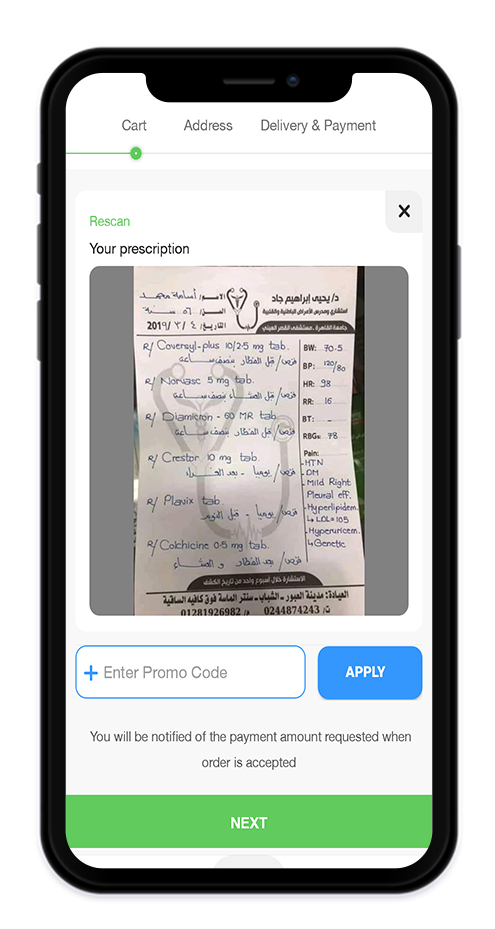 Cart Address Delivery & Payment
Rescan
Your prescription
د/ يحيى إبراهيم جاد
استشاري ومدرس الأمراض الباطنية والقلبية
جامعة القاهرة . مستشفى القصر العيني
الاسم/ أسامة محمد
السن/ ٥٦ سنة
التاريخ/ ٤ / ٣ / 2019
R/ Coversyl-plus 10/2.5 mg tab.
قرص/ قبل الفطار بنصف ساعة
R/ Norvasc 5 mg tab.
قرص/ قبل العشاء بنصف ساعة
R/ Diamicron - 60 MR tab
قرص/ قبل الفطار بنصف ساعة
R/ Crestor 10 mg tab.
قرص/ يوميا - بعد الغداء
R/ Plavix tab.
قرص/ يوميا - قبل النوم
R/ Colchicine 0.5 mg tab.
قرص/ بعد الفطار و العشاء
BW: 70.5
BP: 120/80
HR: 98
RR: 16
BT: -
RBG: 78
Pain:
- HTN
- DM
- Mild Right
Pleural eff.
- Hyperlipidem.
↳ LDL = 105
- Hyperuricem.
↳ Genetic
الاستشارة خلال أسبوع واحد من تاريخ الكشف
العيادة: مدينة العبور - الشباب - سنتر الماسة فوق كافيه الساقية
ت/ 0244874243 م/ 01281926982
Enter Promo Code
APPLY
You will be notified of the payment amount requested when
order is accepted
NEXT